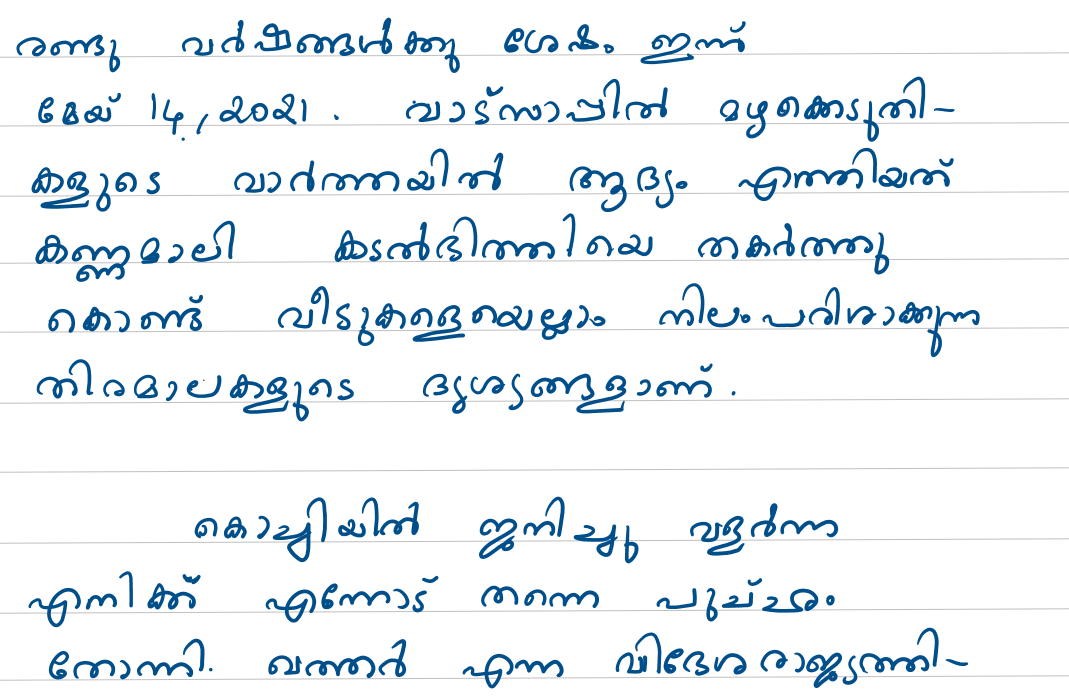 രണ്ടു വർഷങ്ങൾക്കു ശേഷം ഇന്ന്
മേയ് 14, 2021. വാട്സാപ്പിൽ മഴക്കെടുതി-
കളുടെ വാർത്തയിൽ ആദ്യം എത്തിയത്
കണ്ണമാലി കടൽഭിത്തിയെ തകർത്തു
കൊണ്ട് വീടുകളെയെല്ലാം നിലംപരിശാക്കുന്ന
തിരമാലകളുടെ ദൃശ്യങ്ങളാണ്.
കൊച്ചിയിൽ ജനിച്ചു വളർന്ന
എനിക്ക് എന്നോട് തന്നെ പുച്ഛം
തോന്നി. ഖത്തർ എന്ന വിദേശ രാജ്യത്തി-